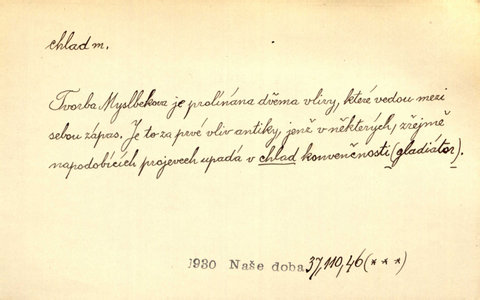 chlad m.
Tvorba Myslbekova je prolínána dvěma vlivy, které vedou mezi
sebou zápas. Je to za prvé vliv antiky, jenž v některých, zřejmě
napodobících projevech upadá v chlad konvenčnosti (gladiátor).
1930 Naše doba 37,110,46 (***)